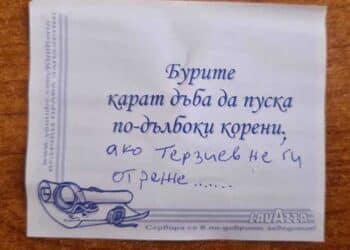 Бурите
карат дъба да пуска
по-дълбоки корени,
ако Терзиев не ги
отреже......
LAVAZZA
Сервира се в по-добрите заведения!